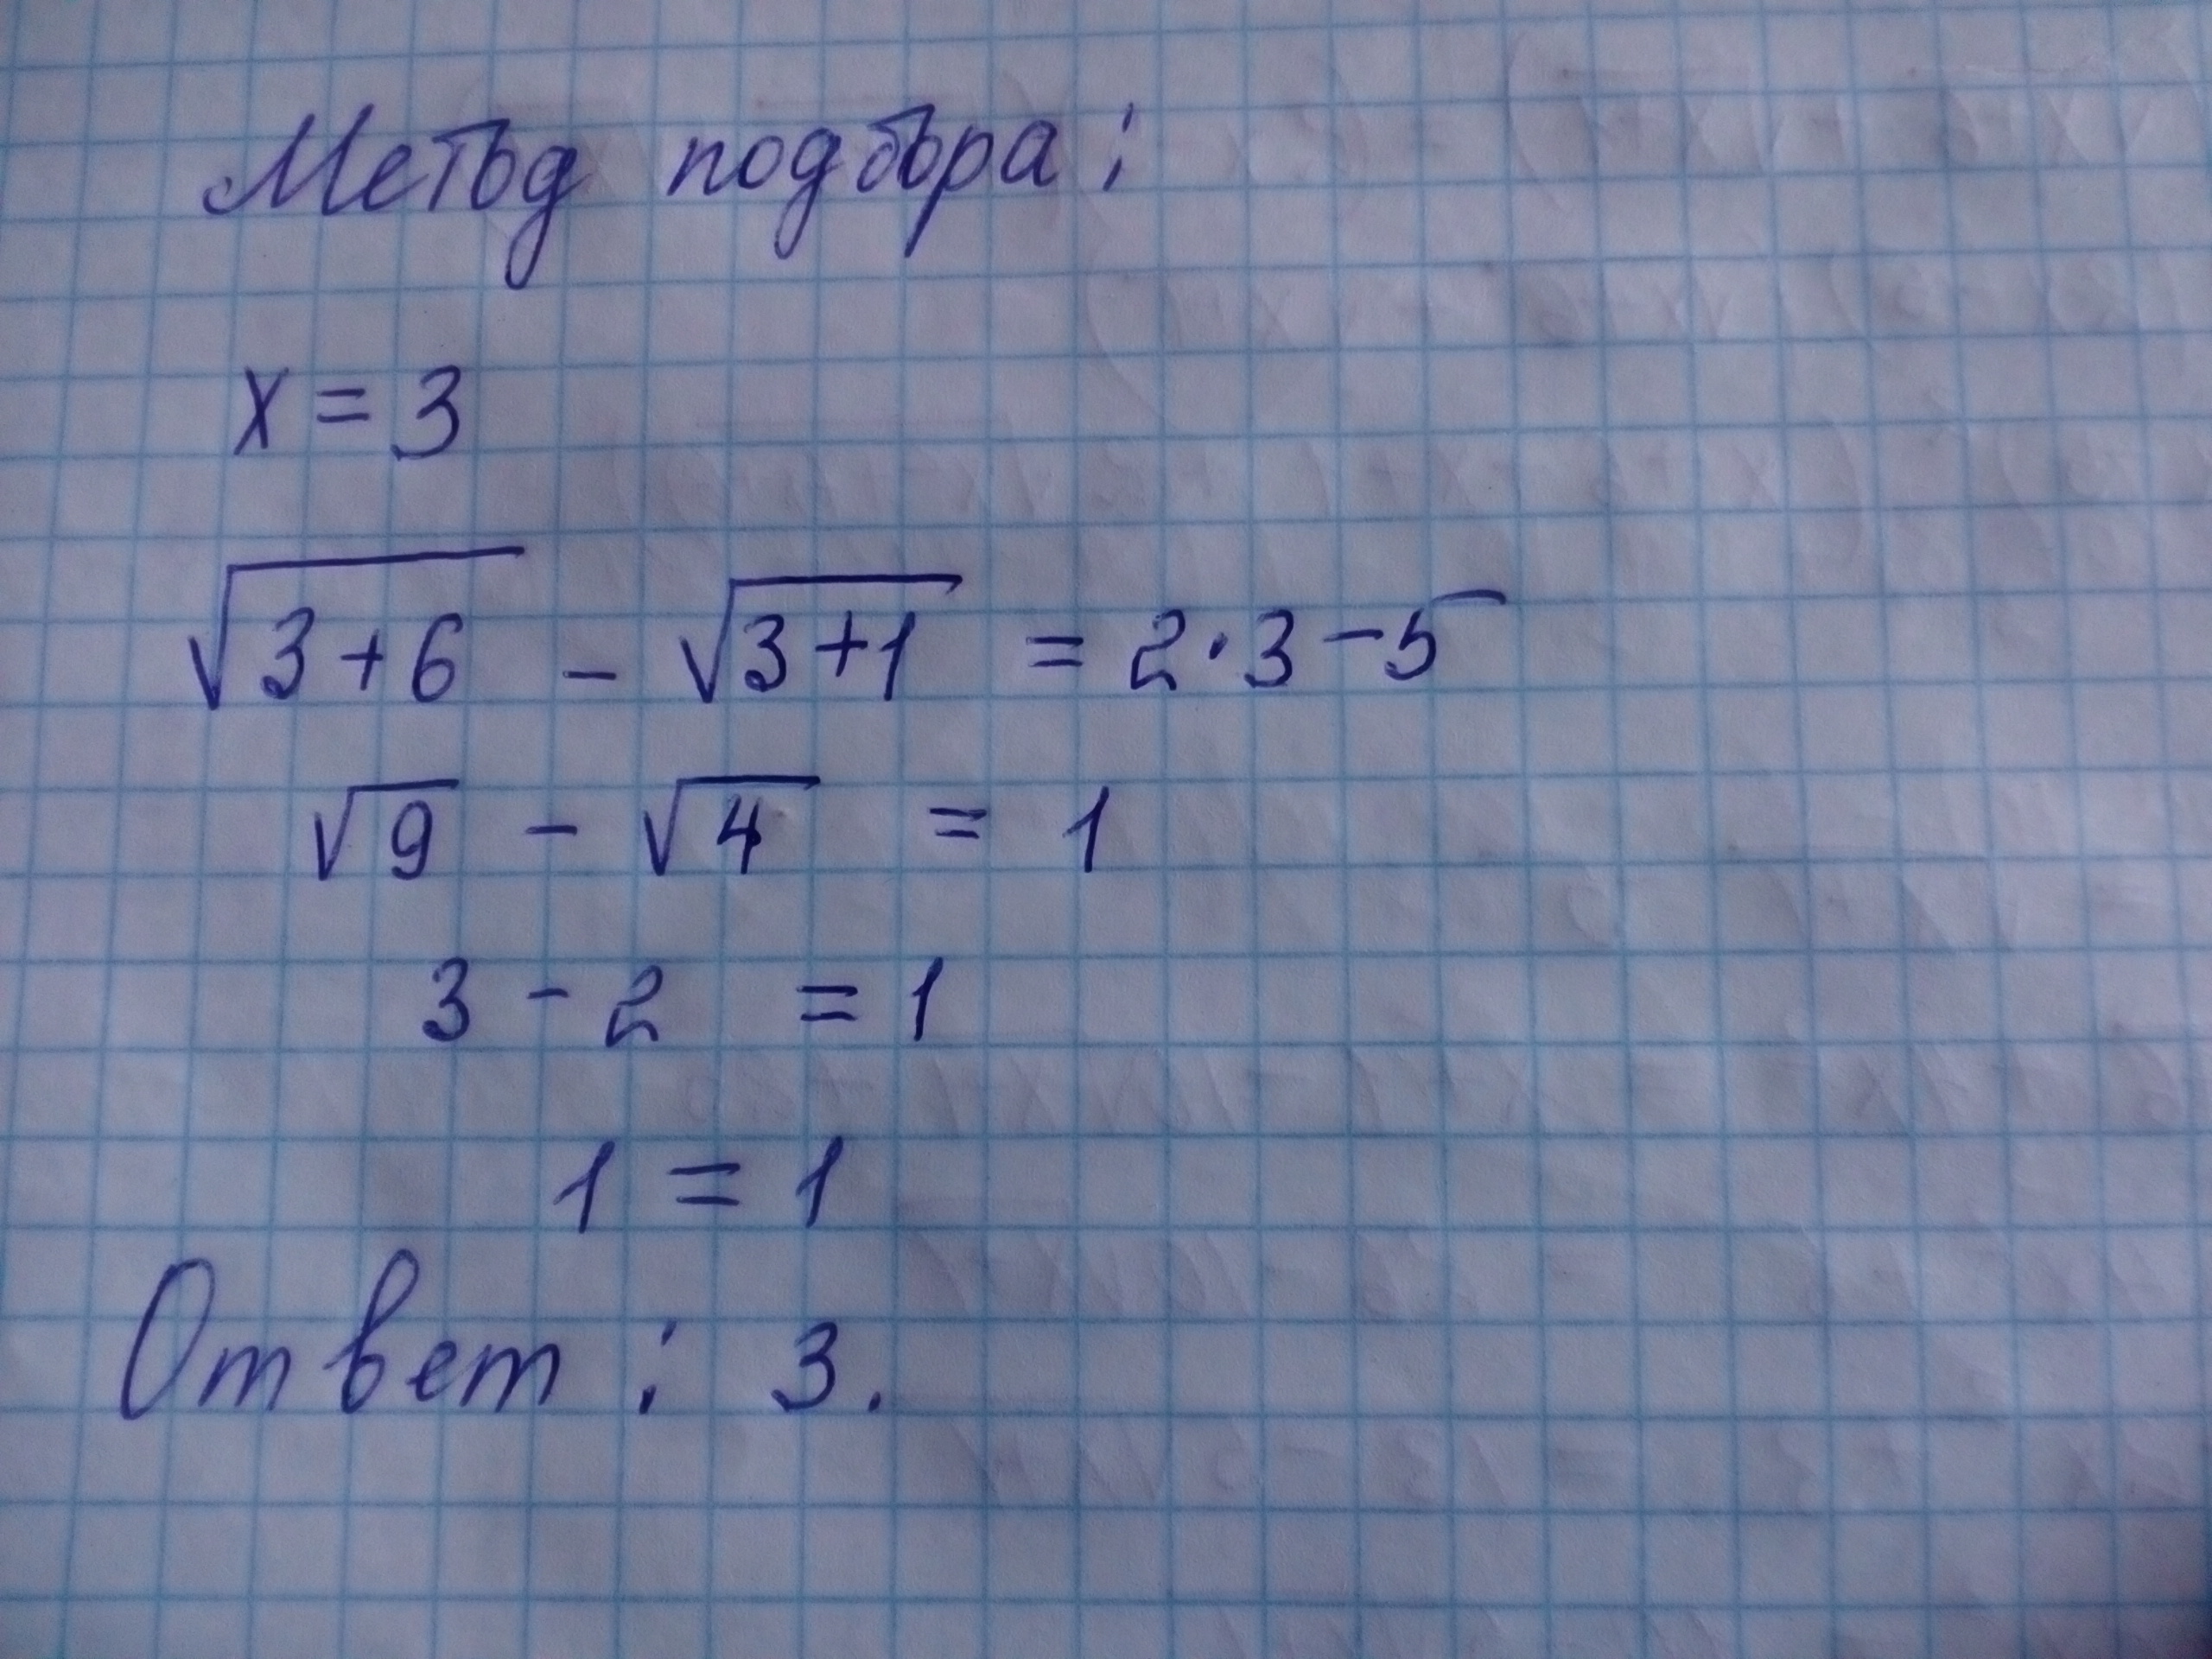 Метод подбора:
x = 3
√(3+6) - √(3+1) = 2·3-5
√9 - √4 = 1
3 - 2 = 1
1 = 1
Ответ: 3.